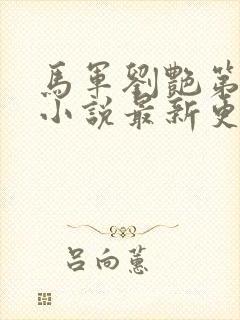 馬軍劉艷第
小說最新更
呂向蕙